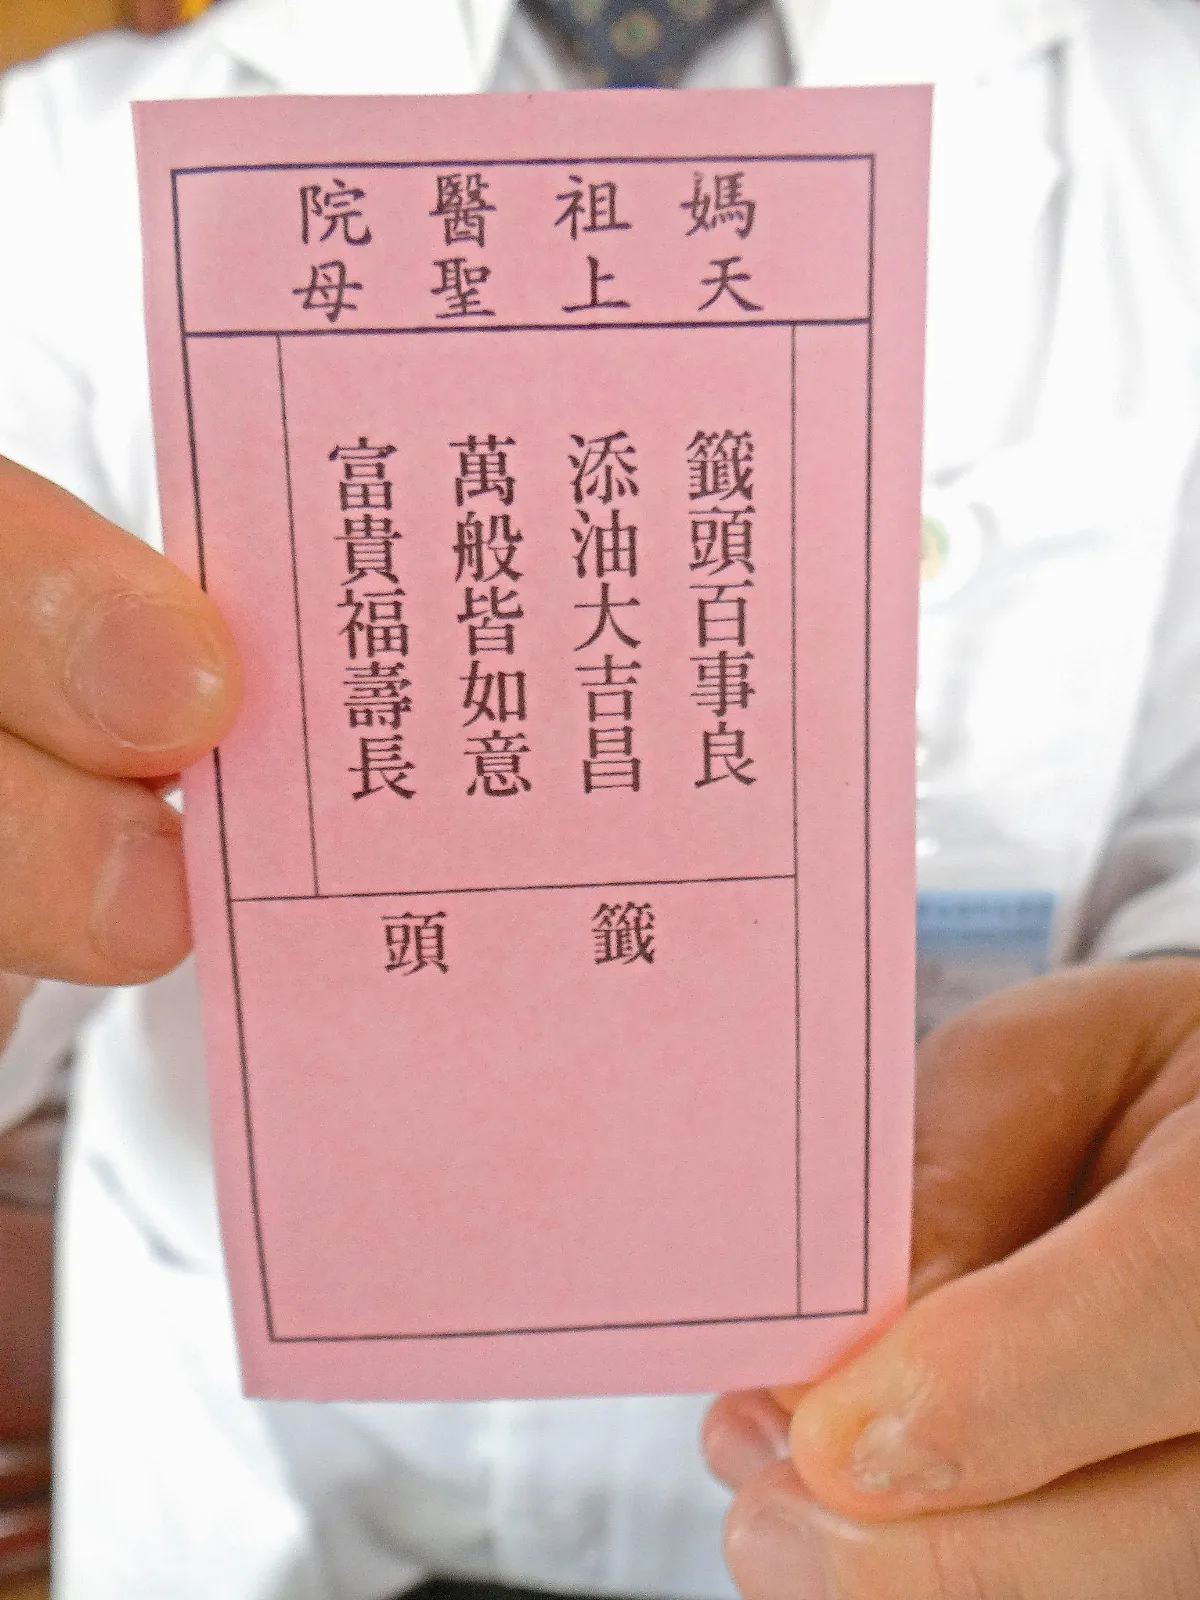 媽祖醫院
天上聖母
籤頭百事良
添油大吉昌
萬般皆如意
富貴福壽長
籤頭